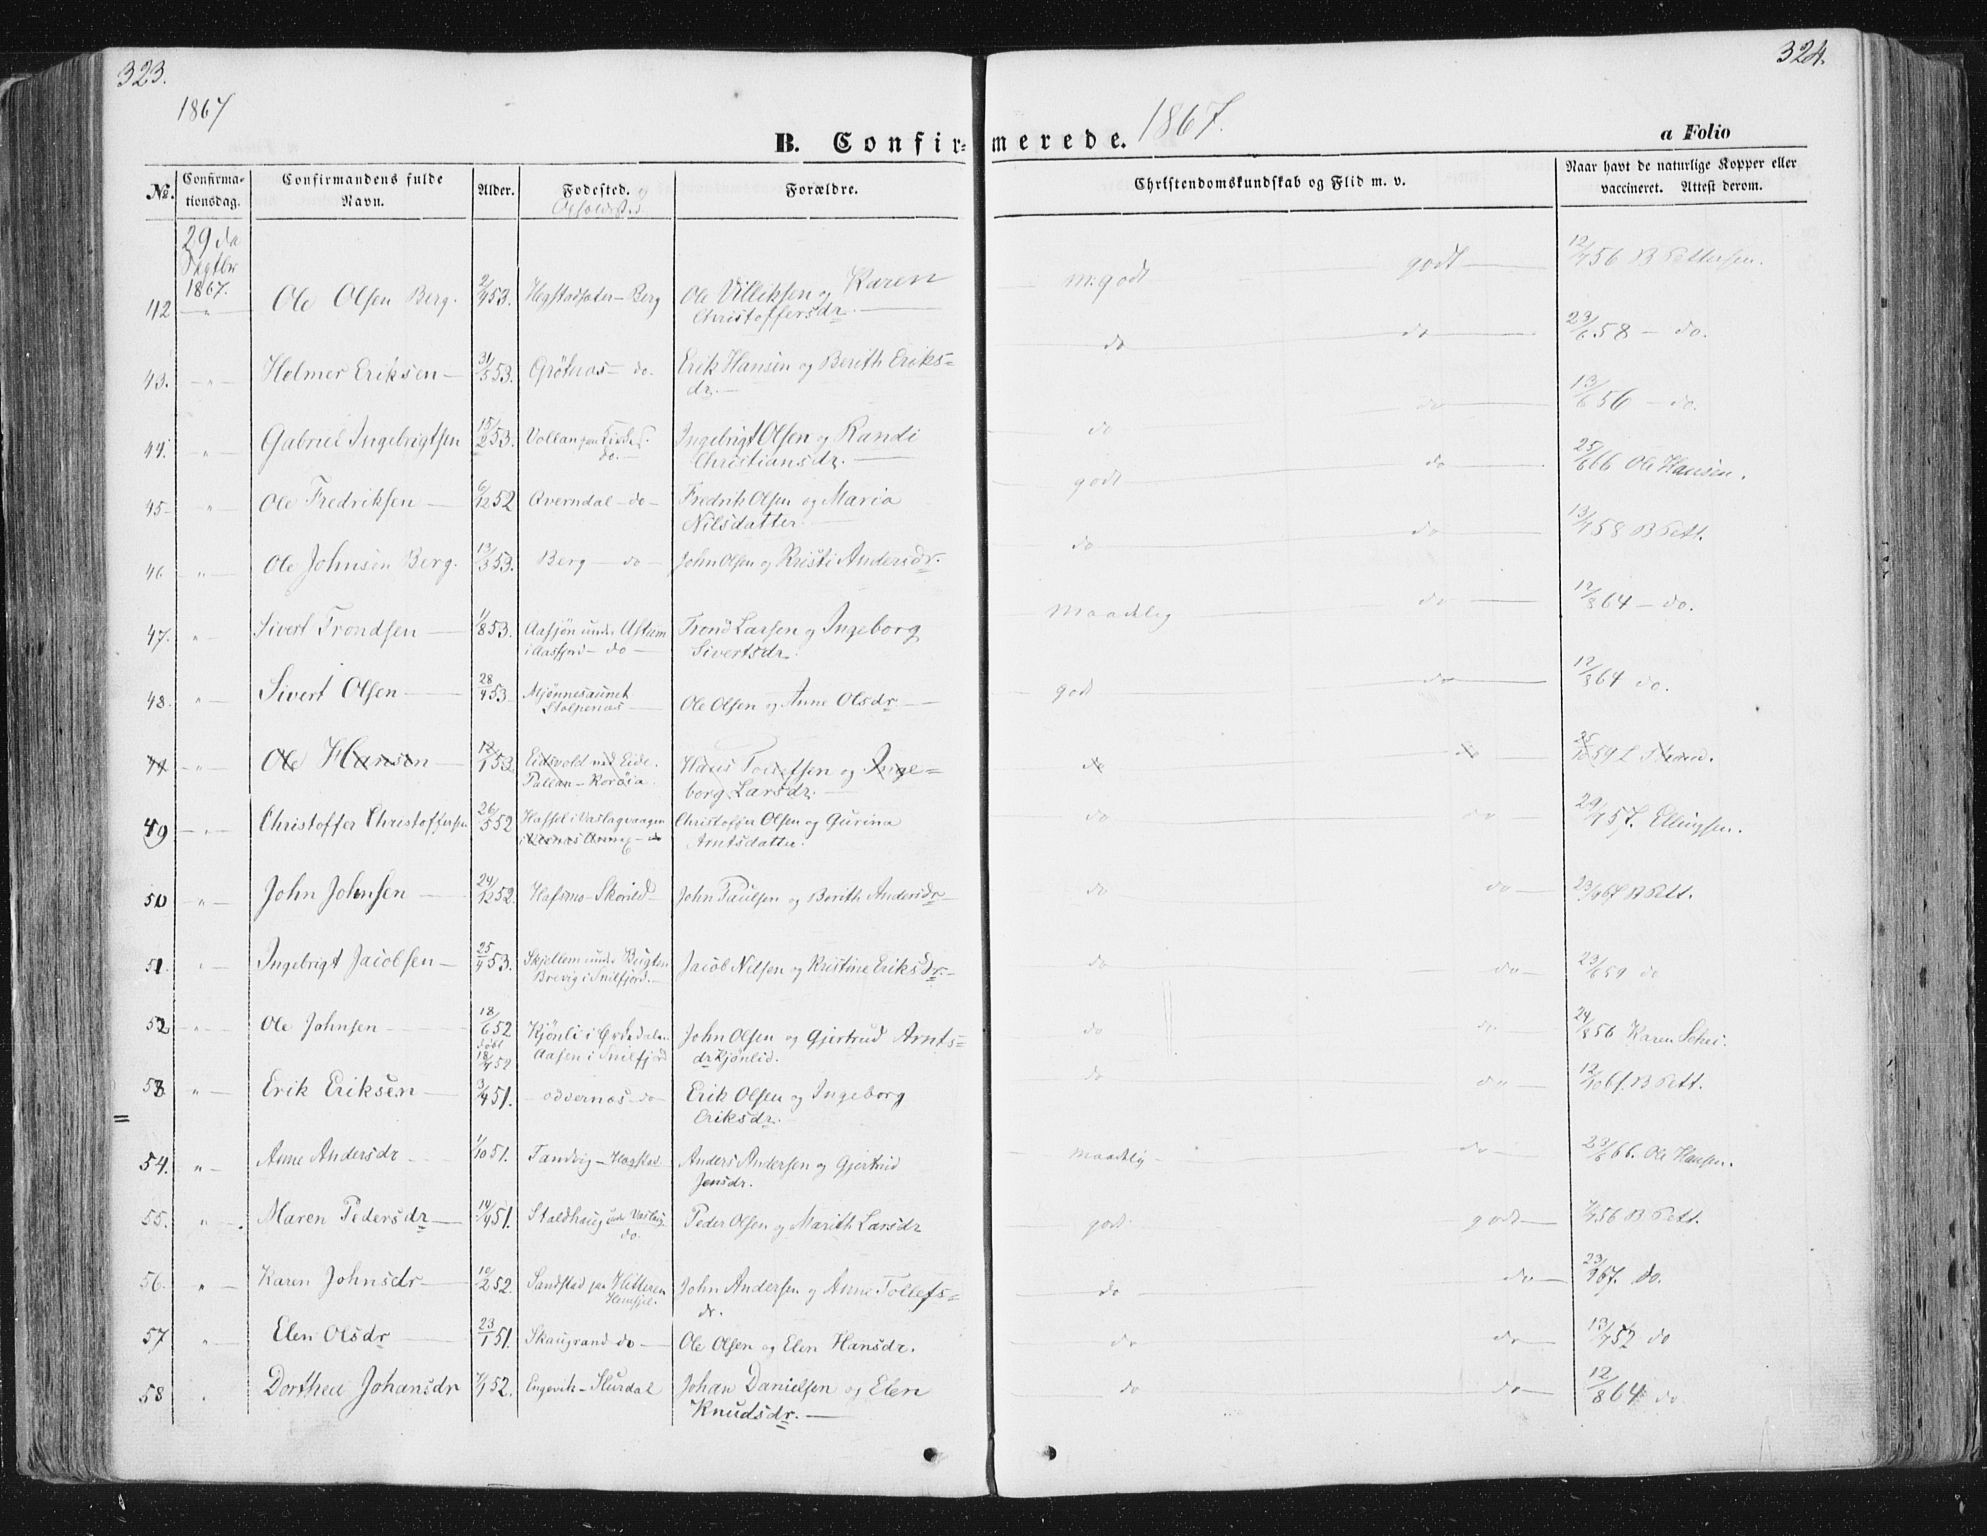 323.
324.
1867
B. Confir-
merede. 1867.
a Folio
No.
Confirma-
tionsdag.
Confirmandens fulde
Navn.
Alder.
Fødested. og
Opholdssted
Forældre.
Christendomskundskab og Flid m. v.
Naar havt de naturlige Kopper eller
vaccineret. Attest derom.
29da
Septbr
1867.
42 " Ole Olsen Berg. 2/4 53. Hegstadsæter - Berg Ole Villiksen og Karen
Christoffersdr. m. godt godt 12/7 56 B Pettersen.
43. " Holmer Eriksen 31/5 53. Grötnes - do. Erik Hansen og Berith Eriks=
dr. do do 23/6 58 - do.
44. " Gabriel Ingebrigtsen 15/2 53. Vollan paa
do. Ingebrigt Olsen og Randi
Christiansdr. do do 13/6 56 - do.
45 " Ole Fredriksen 6/12 52 Qverndal - do Fredrik Olsen og Maria
Nilsdatter. godt do 25/6 66 Ole Hansen.
46 " Ole Johnsen Berg. 13/3 53. Berg - do John Olsen og Kristi Andersdr. do do 13/7 58 B Pett.
47. " Sivert Trondsen 1/8 53. Aasjön under
i Aasfjord - do Trond Larsen og Ingeborg
Sivertsdr. maadelig do 12/8 64 - do.
48. " Sivert Olsen 28/4 53 Mjönnesaunet
Stolpenæs Ole Olsen og Anne Olsdr godt do 12/8 64 do.
" Ole Hansen 12/1 53 Eidsvold ved Eide.
Hans og Inge=
borg Larsdr. do do 59
49 " Christoffer Christoffersen 26/5 52 Hassel i Vaslagvaagen
Christoffer Olsen og Gurina
Arntsdatter. do do 29/7 57. Ellingsen.
50 " John Johnsen 24/12 52. Hafsmo - Skorild John Paulsen og Berith Andersdr do do 23/9 67 B Pett.
51. " Ingebrigt Jacobsen 25/4 53. Skjellem under
Brevig i Snilfjord. Jacob Nilsen og Kristine Eriksdr. do do 23/6 59 do
52 " Ole Johnsen 18/6 52
döbt
18/7 52 Kjönli i
Aasen i Snilfjord John Olsen og Gjertrud Arnts=
dr Kjönlid. do do 24/8 56 Karen Schei.
53 " Erik Eriksen 3/4 51. odvernæs - do Erik Olsen og Ingeborg
Eriksdr. do do 12/10 67. B Pett.
=
54. " Anne Andersdr 1/10 51. Tandvig - Hogstad Anders Andersen og Gjertrud
Jensdr. maadelig do 23/6 66. Ole Hansen.
55. " Maren Pedersdr 14/4 51. Staldhaug under Vaslag
do. Peder Olsen og Marith Larsdr godt godt 7/7 56 B Pett.
56. " Karen Johnsdr 10/2 52. Sandstad paa Hitteren
Hemfjel. John Andersen og Anne Tollefs=
dr. do do 23/9 67. do.
57 " Elen Olsdr 23/1 51. Skaugrand - do Ole Olsen og Elen Hansdr. do do 13/7 52 do
58 " Dorthea Johansdr 7/1 52. Engevik - Slurdal Johan Danielsen og Elen
Knudsdr. do do 12/8 64 do